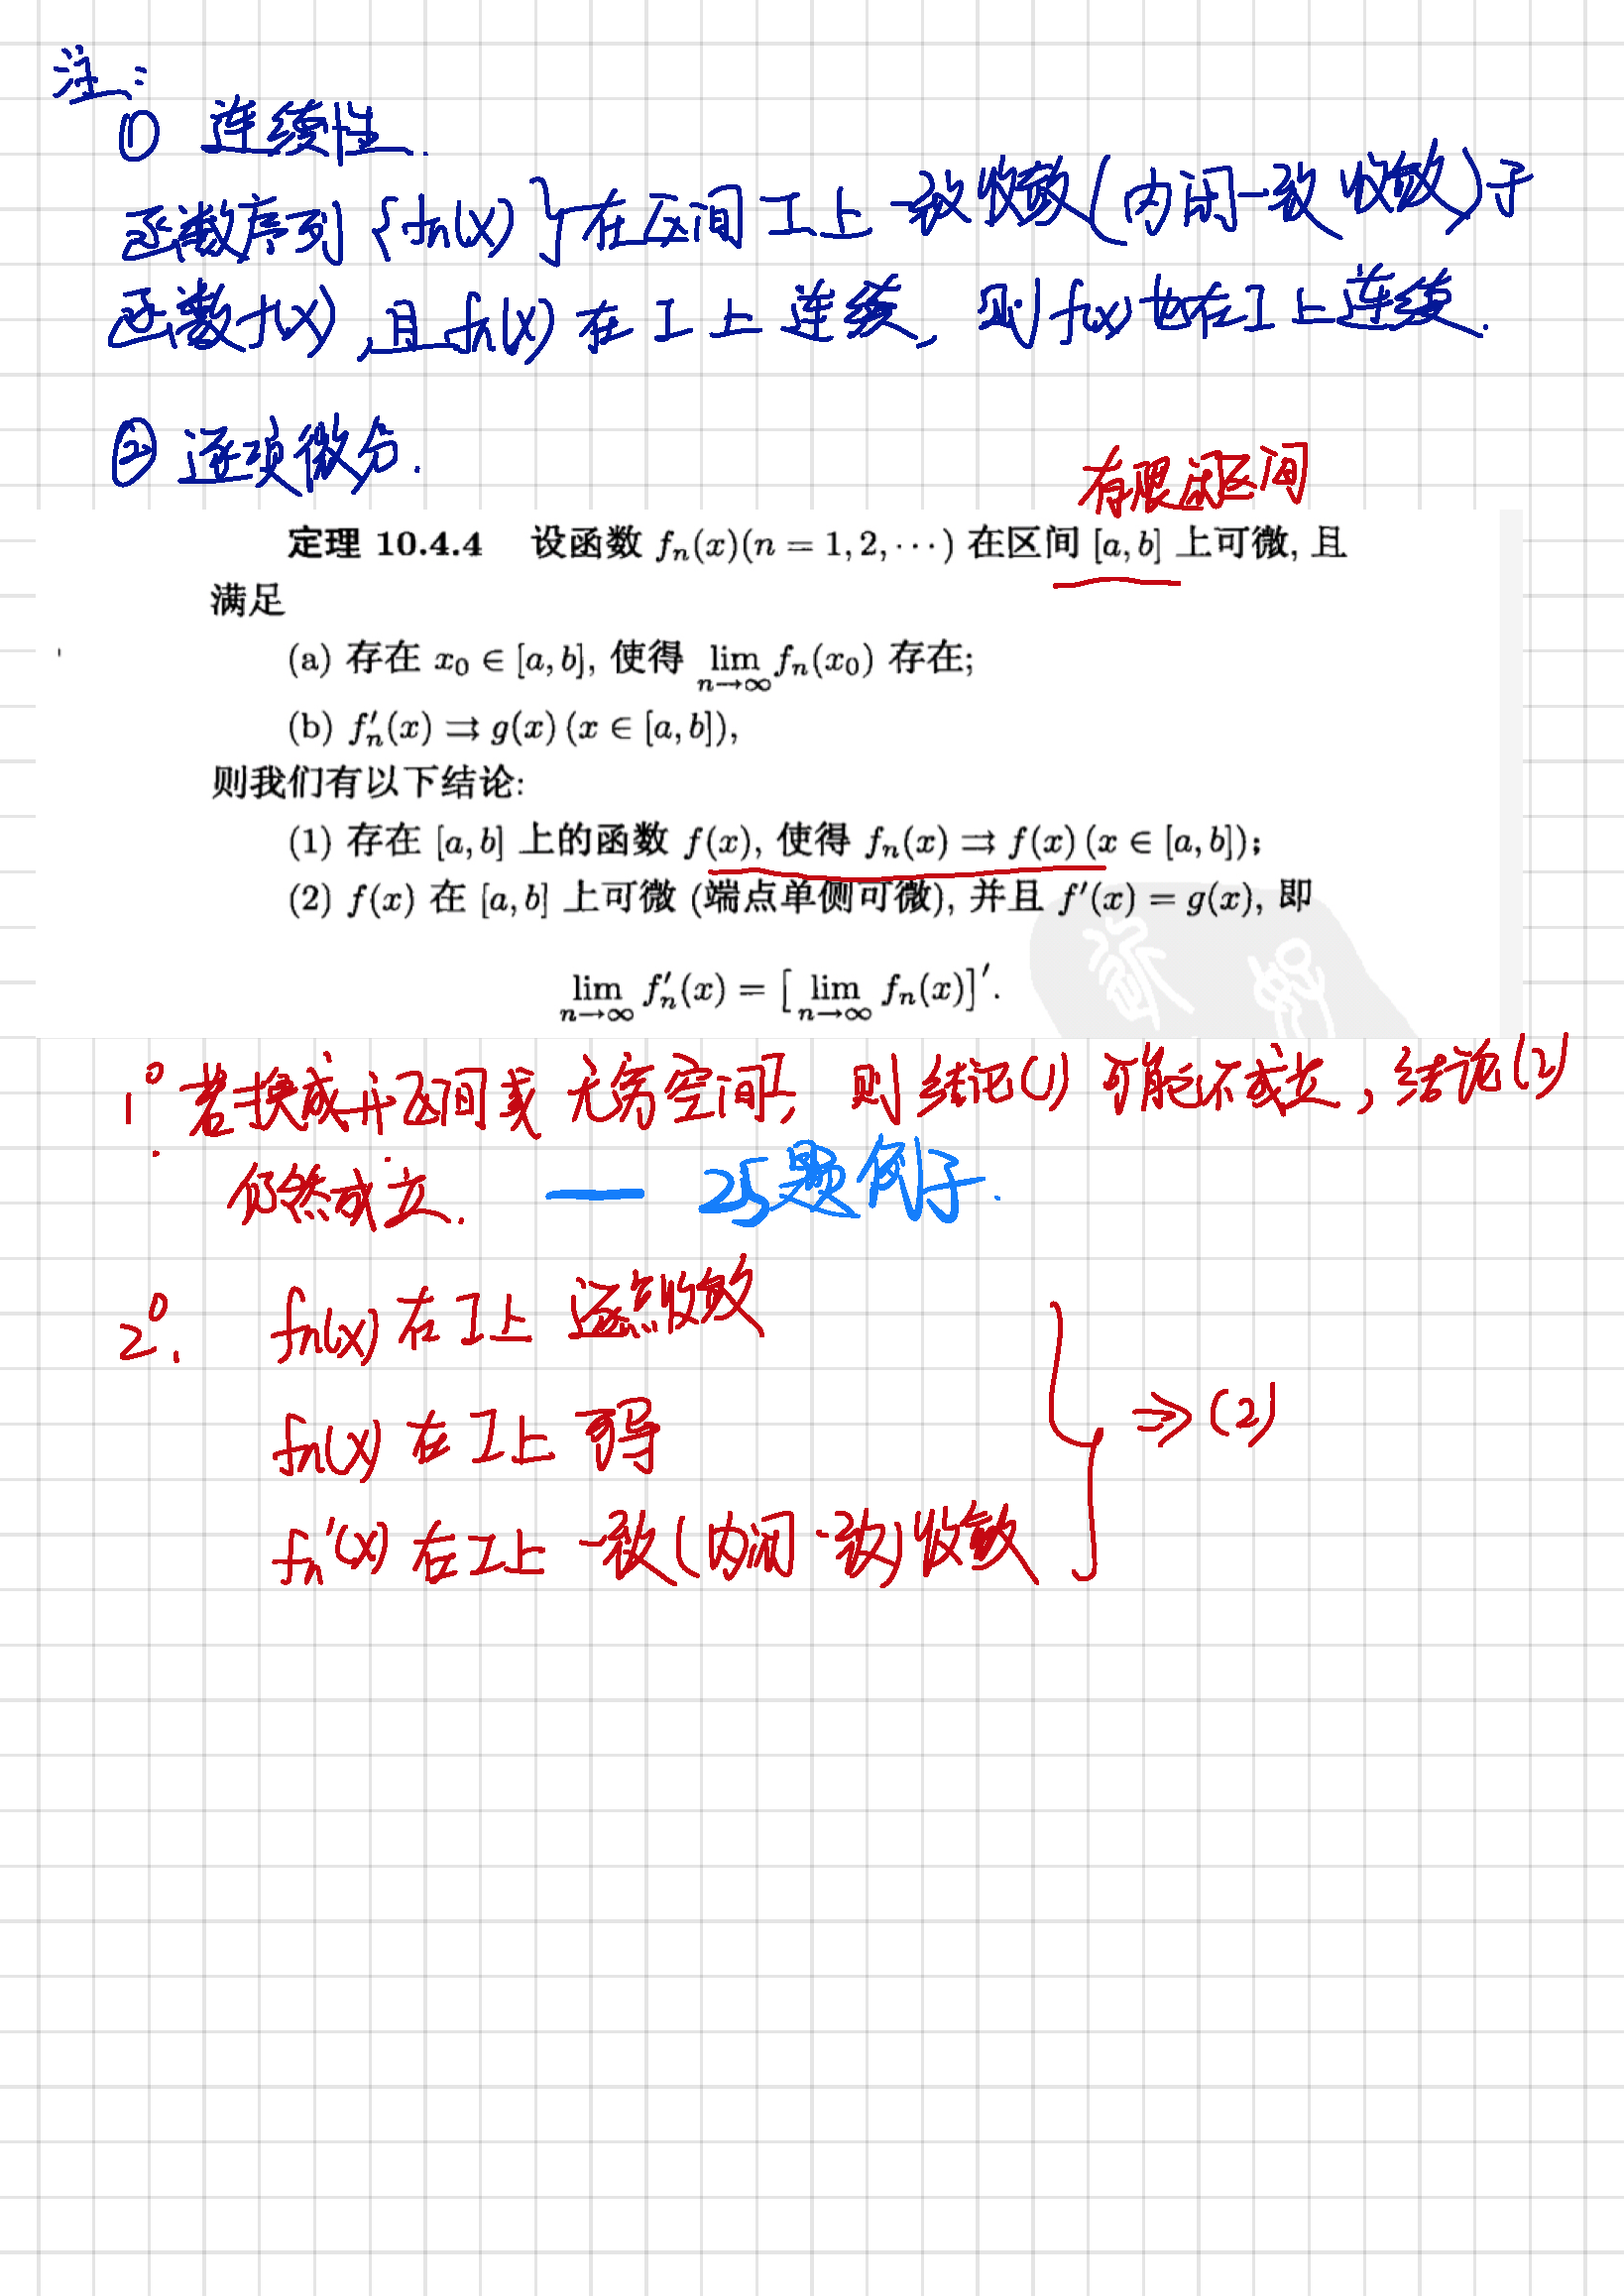 注:
① 连续性.
函数序列{fn(x)}在区间I上一致收敛(内闭一致收敛)于
函数f(x),且fn(x)在I上连续,则f(x)也在I上连续.
② 逐项微分.
有限闭区间
定理 10.4.4 设函数 fₙ(x)(n = 1, 2, ···) 在区间 [a, b] 上可微, 且
满足
(a) 存在 x₀ ∈ [a, b], 使得 lim n→∞ fₙ(x₀) 存在;
(b) f′ₙ(x) ⇉ g(x) (x ∈ [a, b]),
则我们有以下结论:
(1) 存在 [a, b] 上的函数 f(x), 使得 fₙ(x) ⇉ f(x) (x ∈ [a, b]);
(2) f(x) 在 [a, b] 上可微 (端点单侧可微), 并且 f′(x) = g(x), 即
lim n→∞ f′ₙ(x) = [ lim n→∞ fₙ(x)]′.
1°. 若换成开区间或无穷空间I, 则结论(1)可能不成立,结论(2)
仍然成立. — 25题例子.
2°. fn(x)在I上逐点收敛
fn(x)在I上可导
fn'(x)在I上一致(内闭一致)收敛
} ⇒ (2)